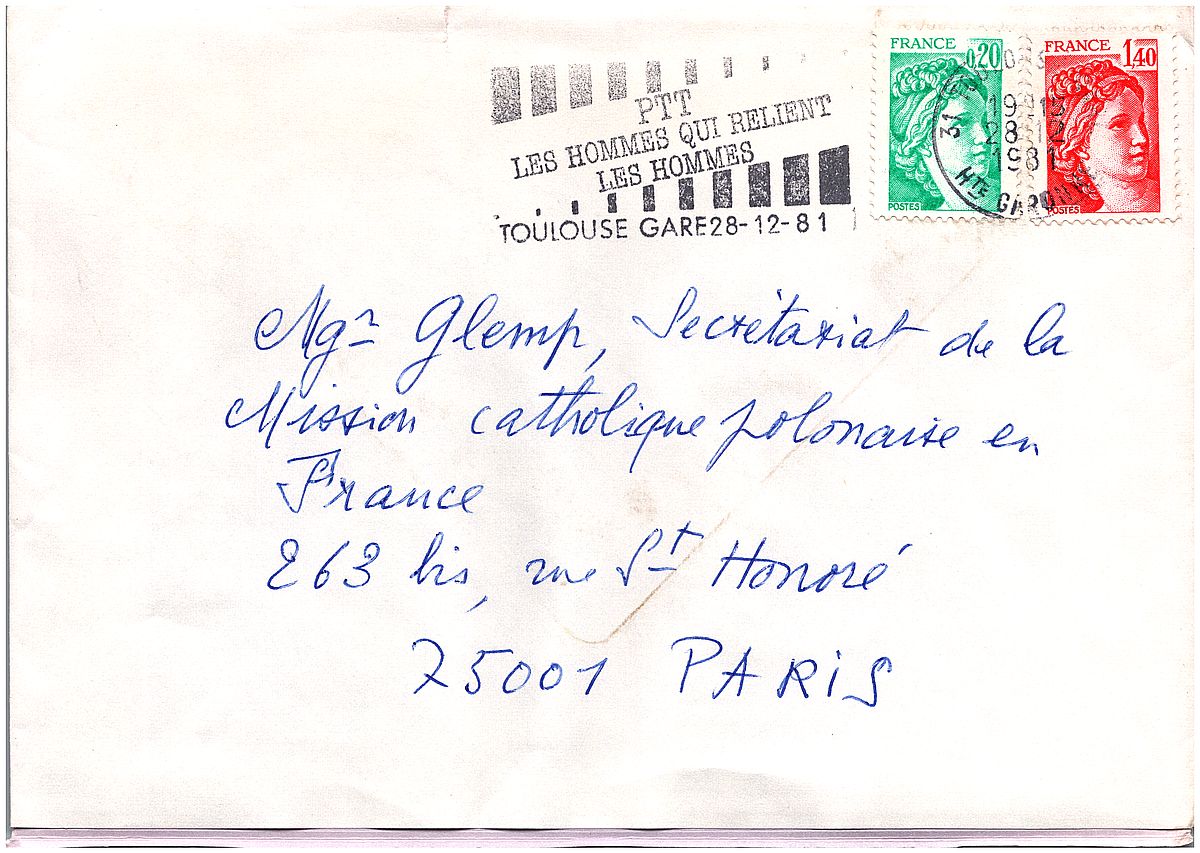 FRANCE 0,20
POSTES
FRANCE 1,40
POSTES
31
19
28-12
1981
HTE GARONNE
PTT
LES HOMMES QUI RELIENT
LES HOMMES
TOULOUSE GARE 28-12-81
Mgr Glemp, Secrétariat de la
Mission catholique polonaise en
France
263 bis, rue St Honoré
75001 PARIS